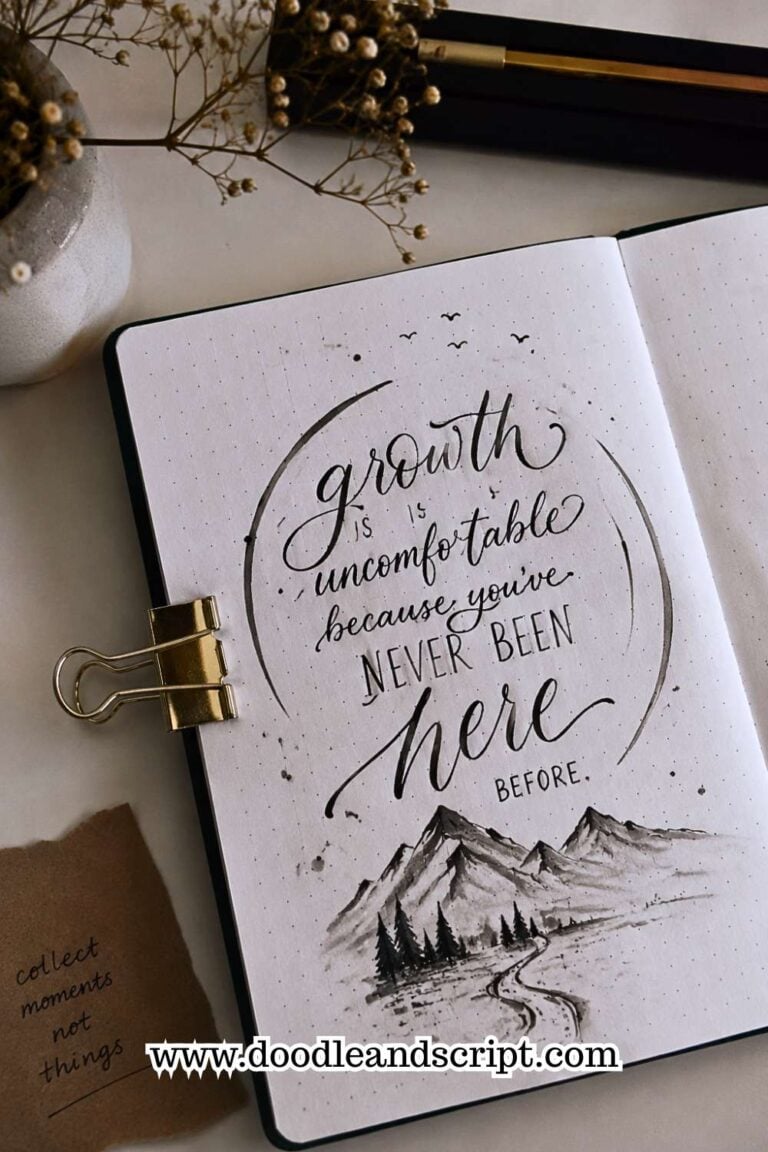 growth
is is s
uncomfortable
because you've
NEVER BEEN
here
BEFORE.
collect
moments
not
things
www.doodleandscript.com